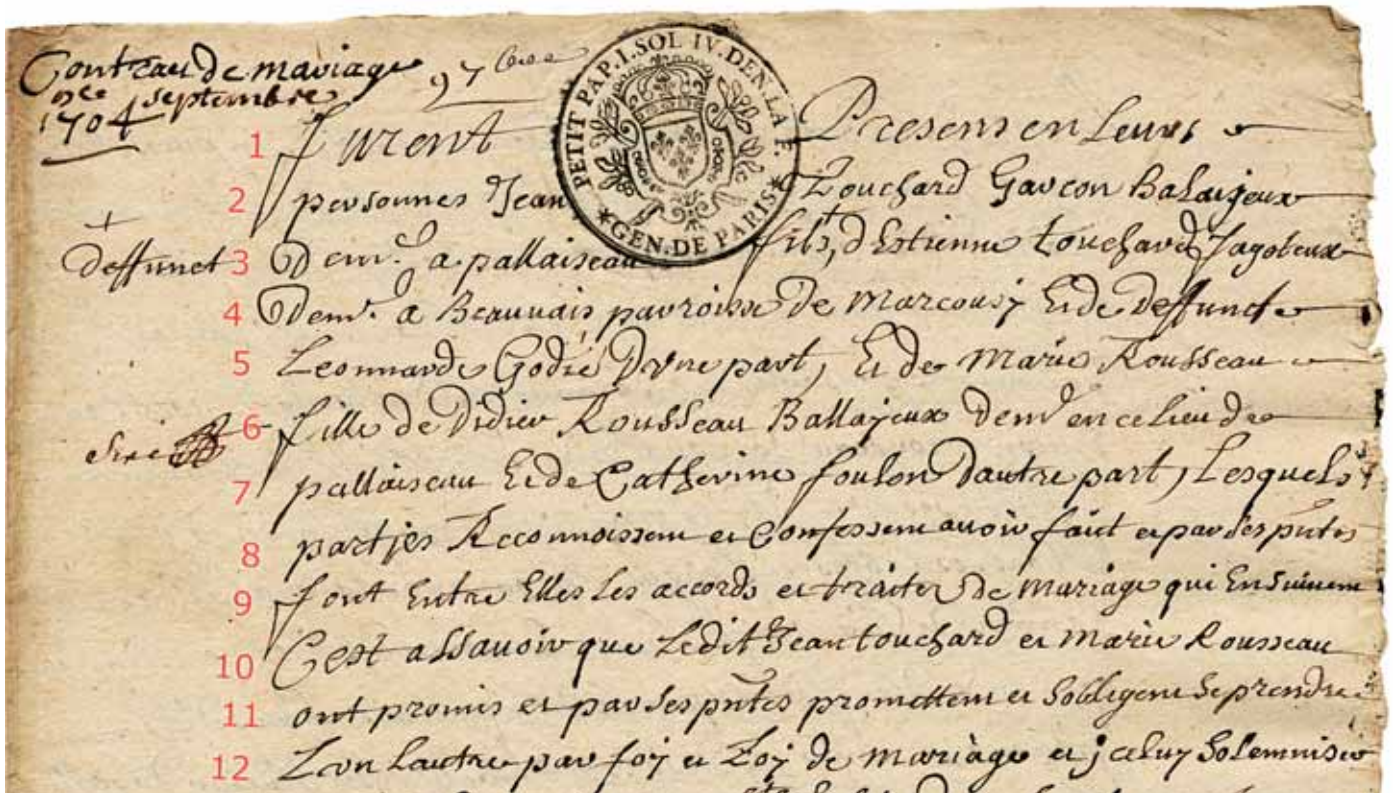 Contract de mariage
septembre
1704
PETIT PAP. I. SOL IV. DEN. LA F.
*GEN. DE PARIS*
1 furent Presens en Leurs
2 personnes Jean Touchard Garcon Balaijeux
deffunct
3 Demt a pallaiseau fils, d Estienne touchard fagoteux
4 Demt a Beauuais parroisse De Marcousy Et de Deffuncte
5 Leonnarde Godié D vne part, Et de Marie Rousseau
6 fille de Didier Rousseau Ballajeux demt en ce lieu de
7 pallaiseau Et de Catherine foulon Dautre part, Lesquels
8 partjes Reconnoissent et Confessent auoir faict et par ses pntes
9 font Entre Elles Les accords et traites De mariage qui Ensuiuent
10 Cest assauoir que Ledit Jean touchard et marie Rousseau
11 ont promis et par ses pntes promettent et Sobligent Se prendre
12 Lvn Lautre par foy et Loy de mariage et jceluy Solemniser